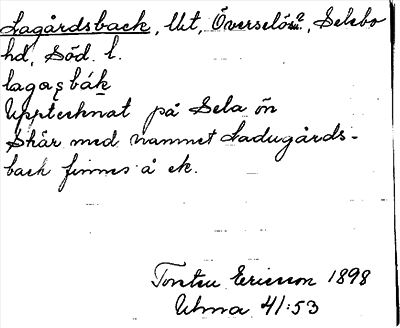 Lagårdsback, Ut, Överselö sn?, Selebo
hd, Söd. l.
lagaʂbák
Upptecknat på Sela ön
Skär med namnet Ladugårds-
back finnes å ek.
Torsten Ericsson 1898
Ulma 41:53